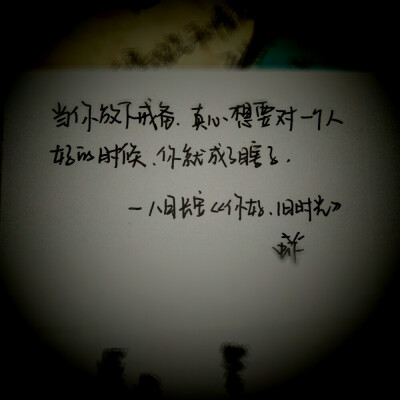 当你放下戒备、真心想要对一个人
好的时候、你就成了瞎子.
—八月长安《你好、旧时光》